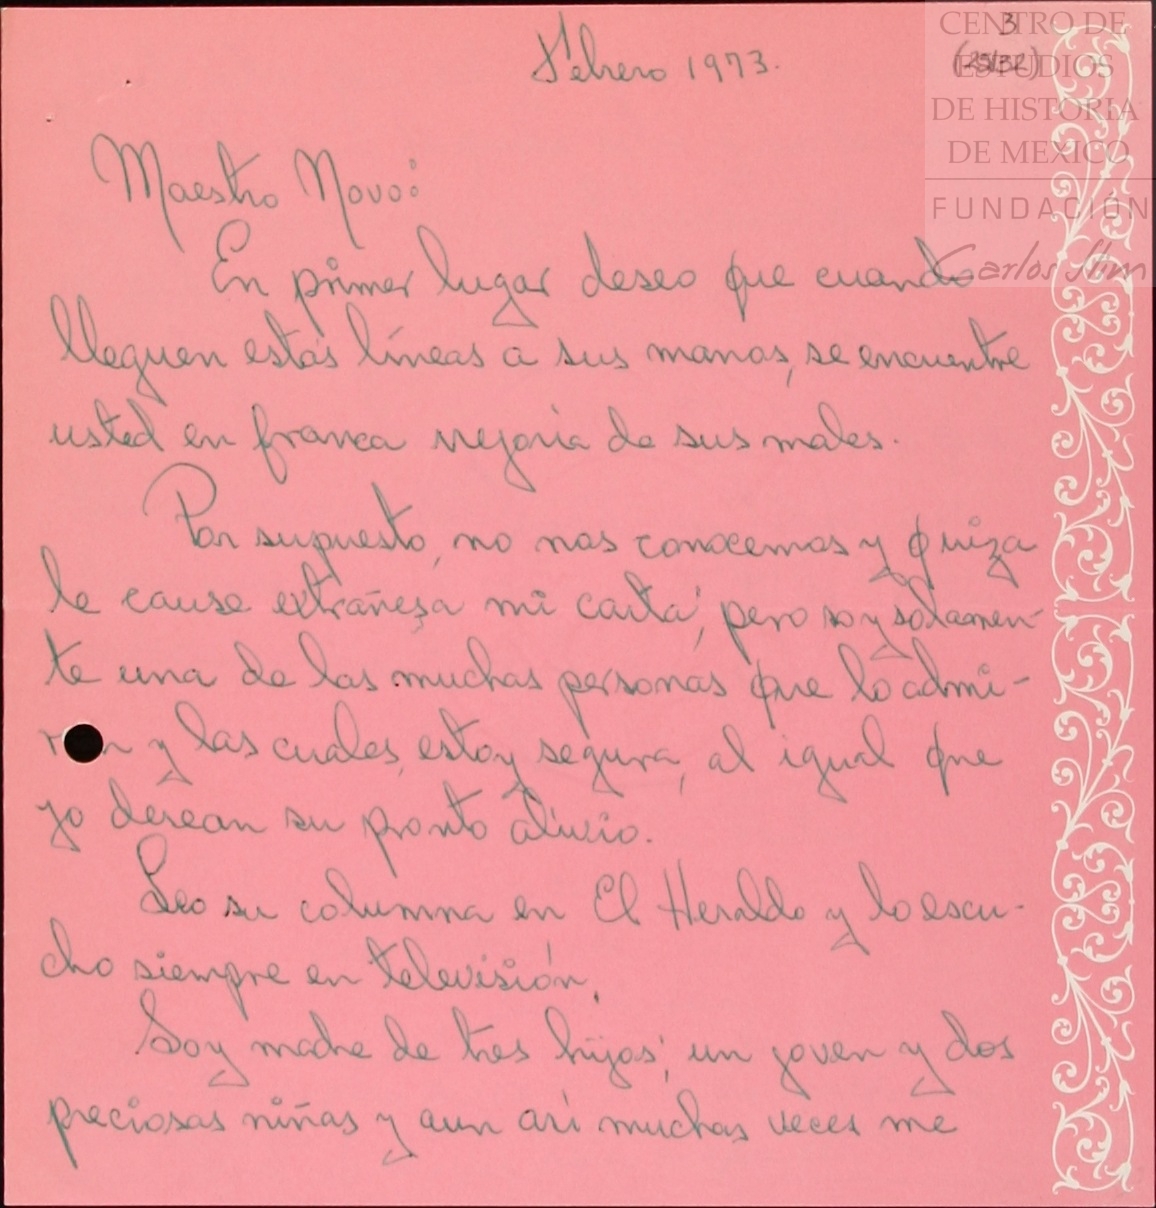 CENTRO DE
ESTUDIOS
DE HISTORIA
DE MEXICO
FUNDACIÓN
Carlos Slim
3
Febrero 1973.
Maestro Novo:
En primer lugar deseo que cuando
lleguen estas líneas a sus manos, se encuentre
usted en franca mejoria de sus males.
Por supuesto, no nos conocemos y quiza
le cause extrañeza mi carta; pero soy solamen-
te una de las muchas personas que lo admi-
ran y las cuales, estoy segura, al igual que
yo desean su pronto alivio.
Leo su columna en El Heraldo y lo escu-
cho siempre en televisión.
Soy madre de tres hijos; un joven y dos
preciosas niñas y aun así muchas veces me